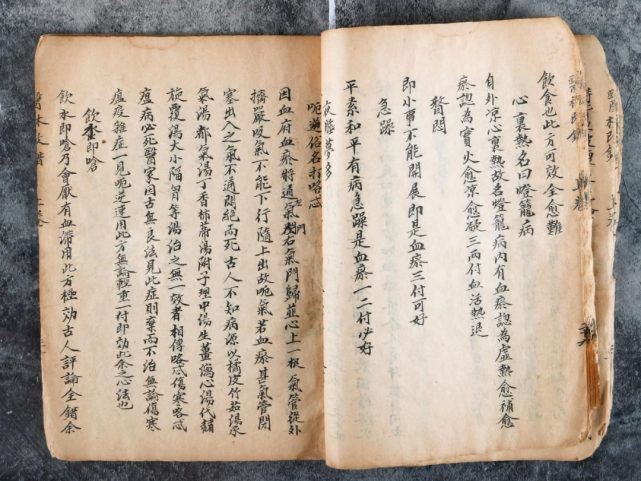 飲食也此方可效全愈難
心裏熱名曰燈籠病
身外凉心裏熱故名燈籠病內有血瘀認為虛熱愈補愈
瘀認為實火愈凉愈凝三兩付血活熱退
瞀悶
即小事不能開展即是血瘀三付可好
急躁
平素和平有病急躁是血瘀一二付必好
夜睡夢多
呃逆俗名打咯忒
因血府血瘀將通氣門右氣門歸並心上一根氣管從外
擠嚴吸氣不能下行隨上出故呃氣若血瘀甚氣管閉
塞出入之氣不通悶絕而死古人不知病源以橘皮竹茹湯承
氣湯都氣湯丁香柿蒂湯附子理中湯生薑瀉心湯代赭
旋覆湯大小陷胸等湯治之無一效者相傳咯忒傷寒咯忒
瘟病必死醫家因古無良法見此症則棄而不治無論傷寒
瘟疫雜症一見呃逆速用此方無論輕重一付即効此余之心法也
飲水即嗆
飲水即嗆乃會厭有血滯用此方極効古人評論全錯余